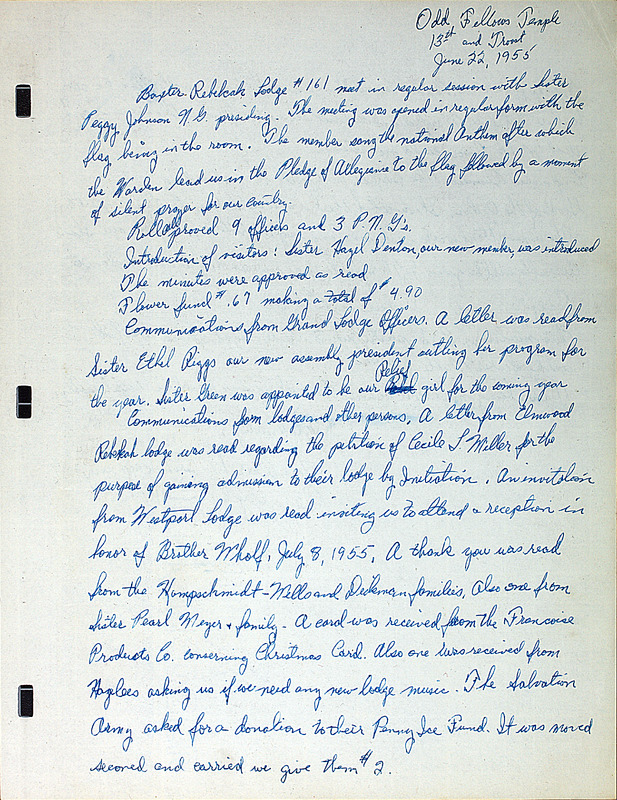 Odd Fellows Temple
13th and Troost
June 22, 1955
Baxter Rebekah Lodge #161 met in regular session with Sister
Peggy Johnson N.G. presiding. The meeting was opened in regular form with the
flag being in the room. The member song the national Anthem after which
the Warden lead us in the Pledge of Allegiance to the flag followed by a moment
of silent prayer for our country.
Rollcall proved 9 officers and 3 P.N.G's.
Introduction of visitors: Sister Hazel Denton, our new member, was introduced
The minutes were approved as read
Flower fund #.67 making a total of $4.90
Communications from Grand Lodge Officers. A letter was read from
Sister Ethel Riggs our new assembly president outling her program for
the year. Sister Green was appointed to be our Relief girl for the coming year
Communications form lodges and other persons. A letter from Elmwood
Rebekah lodge was read regarding the petition of Cecile S. Miller for the
purpose of gaining admission to their lodge by Initiation. An invitation
from Westport Lodge was read inviting us to attend a reception in
honor of Brother Wholf, July 8, 1955. A thank you was read
from the Hompschmidt-Mills and Dickman families, also one from
Sister Pearl Meyer + family. A card was received from the Francoise
Products Co. conserning Christmas Card. Also one was received from
Haylees asking us if we need any new lodge music. The Salvation
Army asked for a donation to their Penny Ice Fund. It was moved
seconed and carried we give them #2.